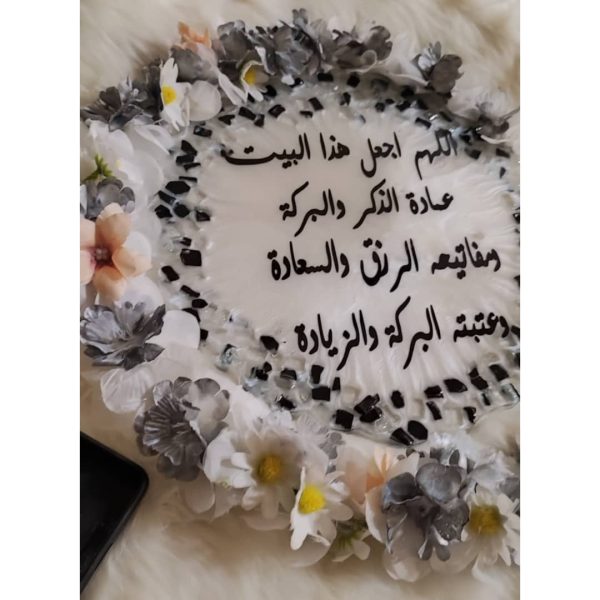 اللهم اجعل هذا البيت
عمادة الذكر والبركة
ومفاتيحه الرزق والسعادة
وعتبته البركة والزيادة